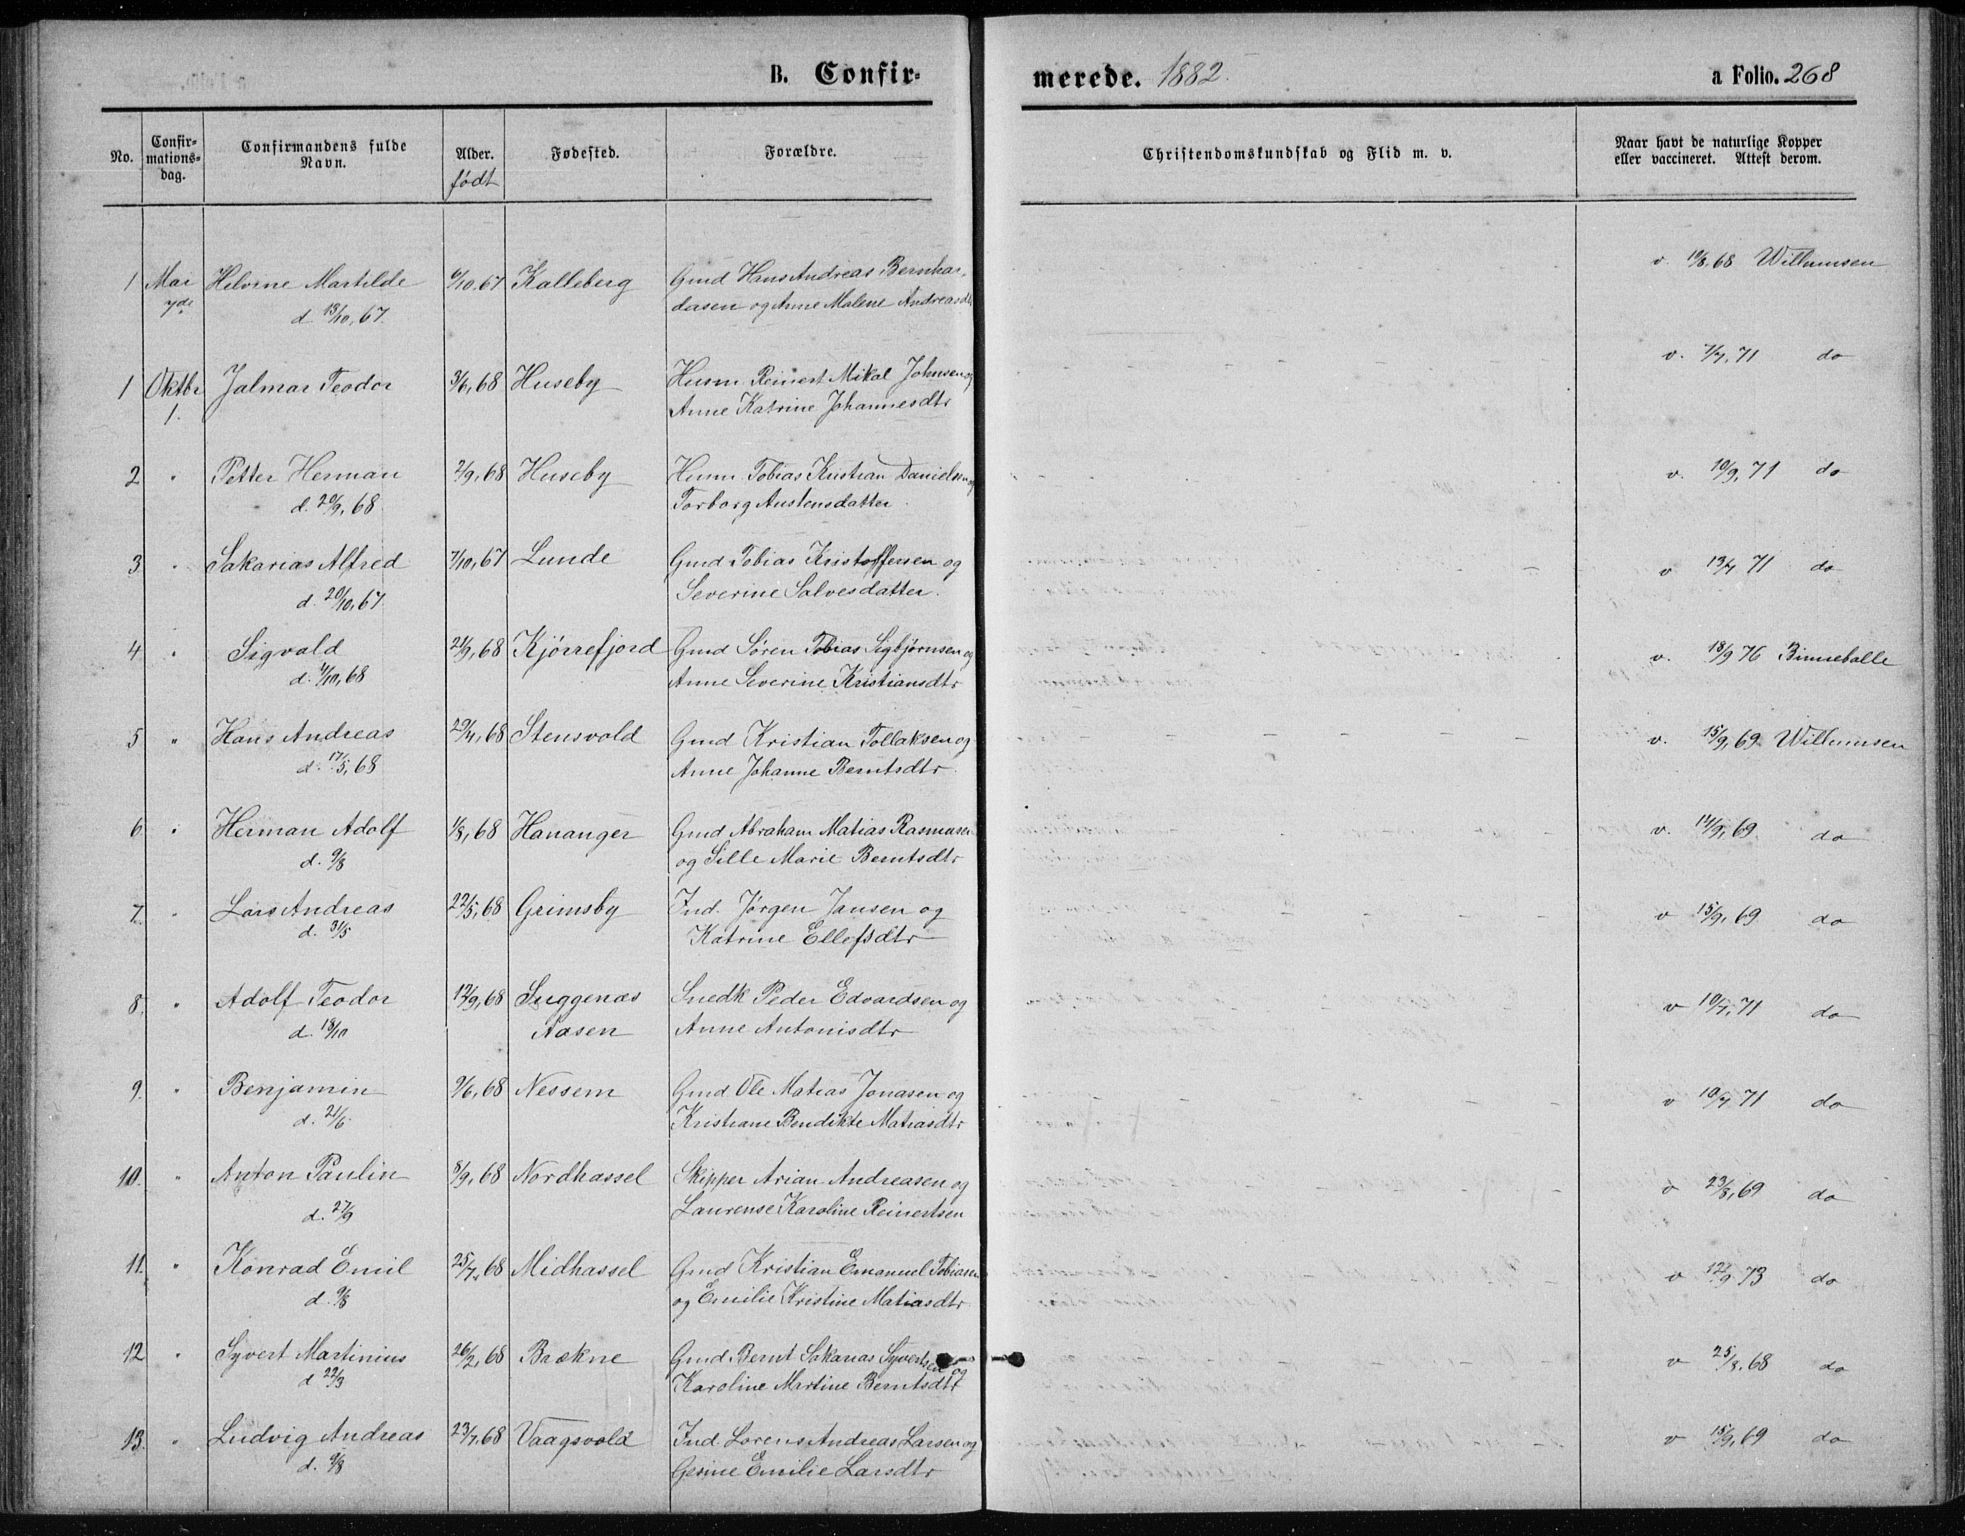 B. Confir-
merede. 1882.
a Folio. 268
No.
Confir-
mations-
dag.
Confirmandens fulde
Navn.
Alder.
født
Fødested.
Forældre.
Christendomskundskab og Flid m. v.
Naar havt de naturlige Kopper
eller vaccineret. Attest derom.
1 Mai Helvine Martilde 6/10,67 Kalleberg Gmd Hans Andreas Bernhar-
7de d. 13/10,67. dusen og Anne Malene Andreasdtr
v. 19/8,68 Willumsen
1 Oktbr Jalmar Teodor 3/6,68 Huseby Husm. Reinert Mikal Johnsen og
1. Anne Katrine Johannesdtr
v. 7/7,71 do
2 " Petter Herman 2/9,68 Huseby Husm. Tobias Kristian Danielsen og
d. 20/9,68. Torborg Austensdatter.
v. 10/9,71 do
3. " Sakarias Alfred 7/10,67 Lunde Gmd Tobias Kristoffersen og
d. 20/10,67. Severine Salvesdatter.
v 13/7 71 do
4. " Sigvald 21/9,68 Kjørrefjord Gmd Søren Tobias Sigbjørnsen og
d. 4/10,68 Anne Severine Kristiansdtr
v. 18/9 76 Binneballe
5 " Hans Andreas 29/4,68 Stensvold Gmd Kristian Tollaksen og
d. 17/5,68 Anne Johanne Berntsdtr.
v. 15/9,69 Willumsen
6. " Herman Adolf 1/8,68 Hananger Gmd Abraham Matias Rasmusen
d. 9/8 og Sille Marie Berntsdtr
v. 14/9,69 do
7. " Lars Andreas 22/5,68 Grimsby Ind. Jørgen Jansen og
d. 31/5 Katrine Ellefsdtr
v 15/9,69 do
8. " Adolf Teodor 12/9,68 Suggenæs Snedk Peder Edvardsen og
d. 18/10 Aasen Anne Antonisdtr
v 10/7,71 do
9. " Benjamin 9/6,68 Nessem Gmd Ole Matias Jonasen og
d. 21/6 Kristiane Bendikte Matiasdtr
v 10/7,71 do
10. " Anton Paulin 8/9,68 Nordhassel Skipper Arian Andreasen og
d. 27/9 Laurense Karoline Reinertsen
v 23/8,69 do
11. " Konrad Emil 25/7,68 Midhassel Gmd Kristian Emanuel Tobiasen
d. 9/8 og Emilie Kristine Matiasdtr
v 12/9 73 do
12 " Syvert Martinius 26/2,68 Brækne Gmd. Bernt Sakarias Syvertsen og
d 22/3 Karoline Martine Berntsdtr
v 25/8,68 do
13. " Ludvig Andreas 23/7,68 Vaagsvold Ind. Lorens Andreas Larsen og
d. 9/8 Gerine Emilie Larsdtr
v 15/9,69 do